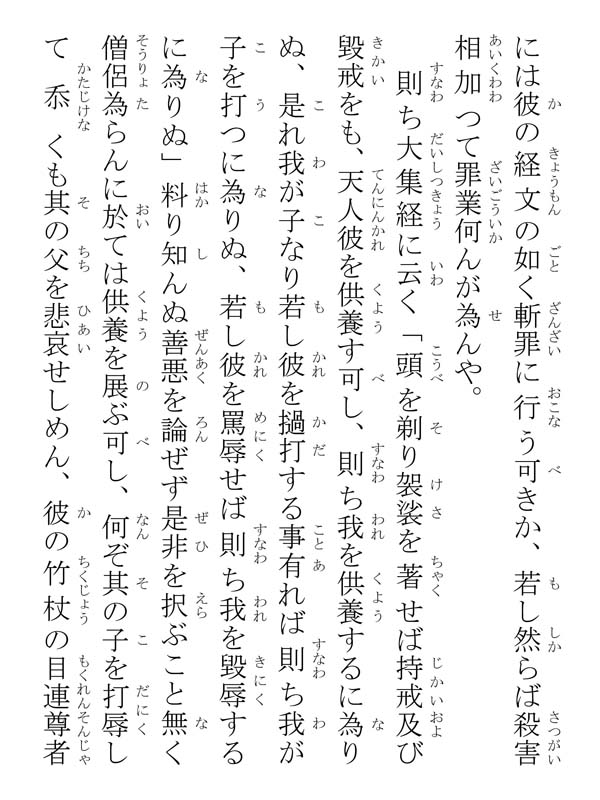 には彼の経文の如く斬罪に行う可きか、若し然らば殺害
相加つて罪業何んが為んや。
則ち大集経に云く「頭を剃り袈裟を著せば持戒及び
毀戒をも、天人彼を供養す可し、則ち我を供養するに為り
ぬ、是れ我が子なり若し彼を撾打する事有れば則ち我が
子を打つに為りぬ、若し彼を罵辱せば則ち我を毀辱する
に為りぬ」料り知んぬ善悪を論ぜず是非を択ぶこと無く
僧侶為らんに於ては供養を展ぶ可し、何ぞ其の子を打辱し
て忝くも其の父を悲哀せしめん、彼の竹杖の目連尊者